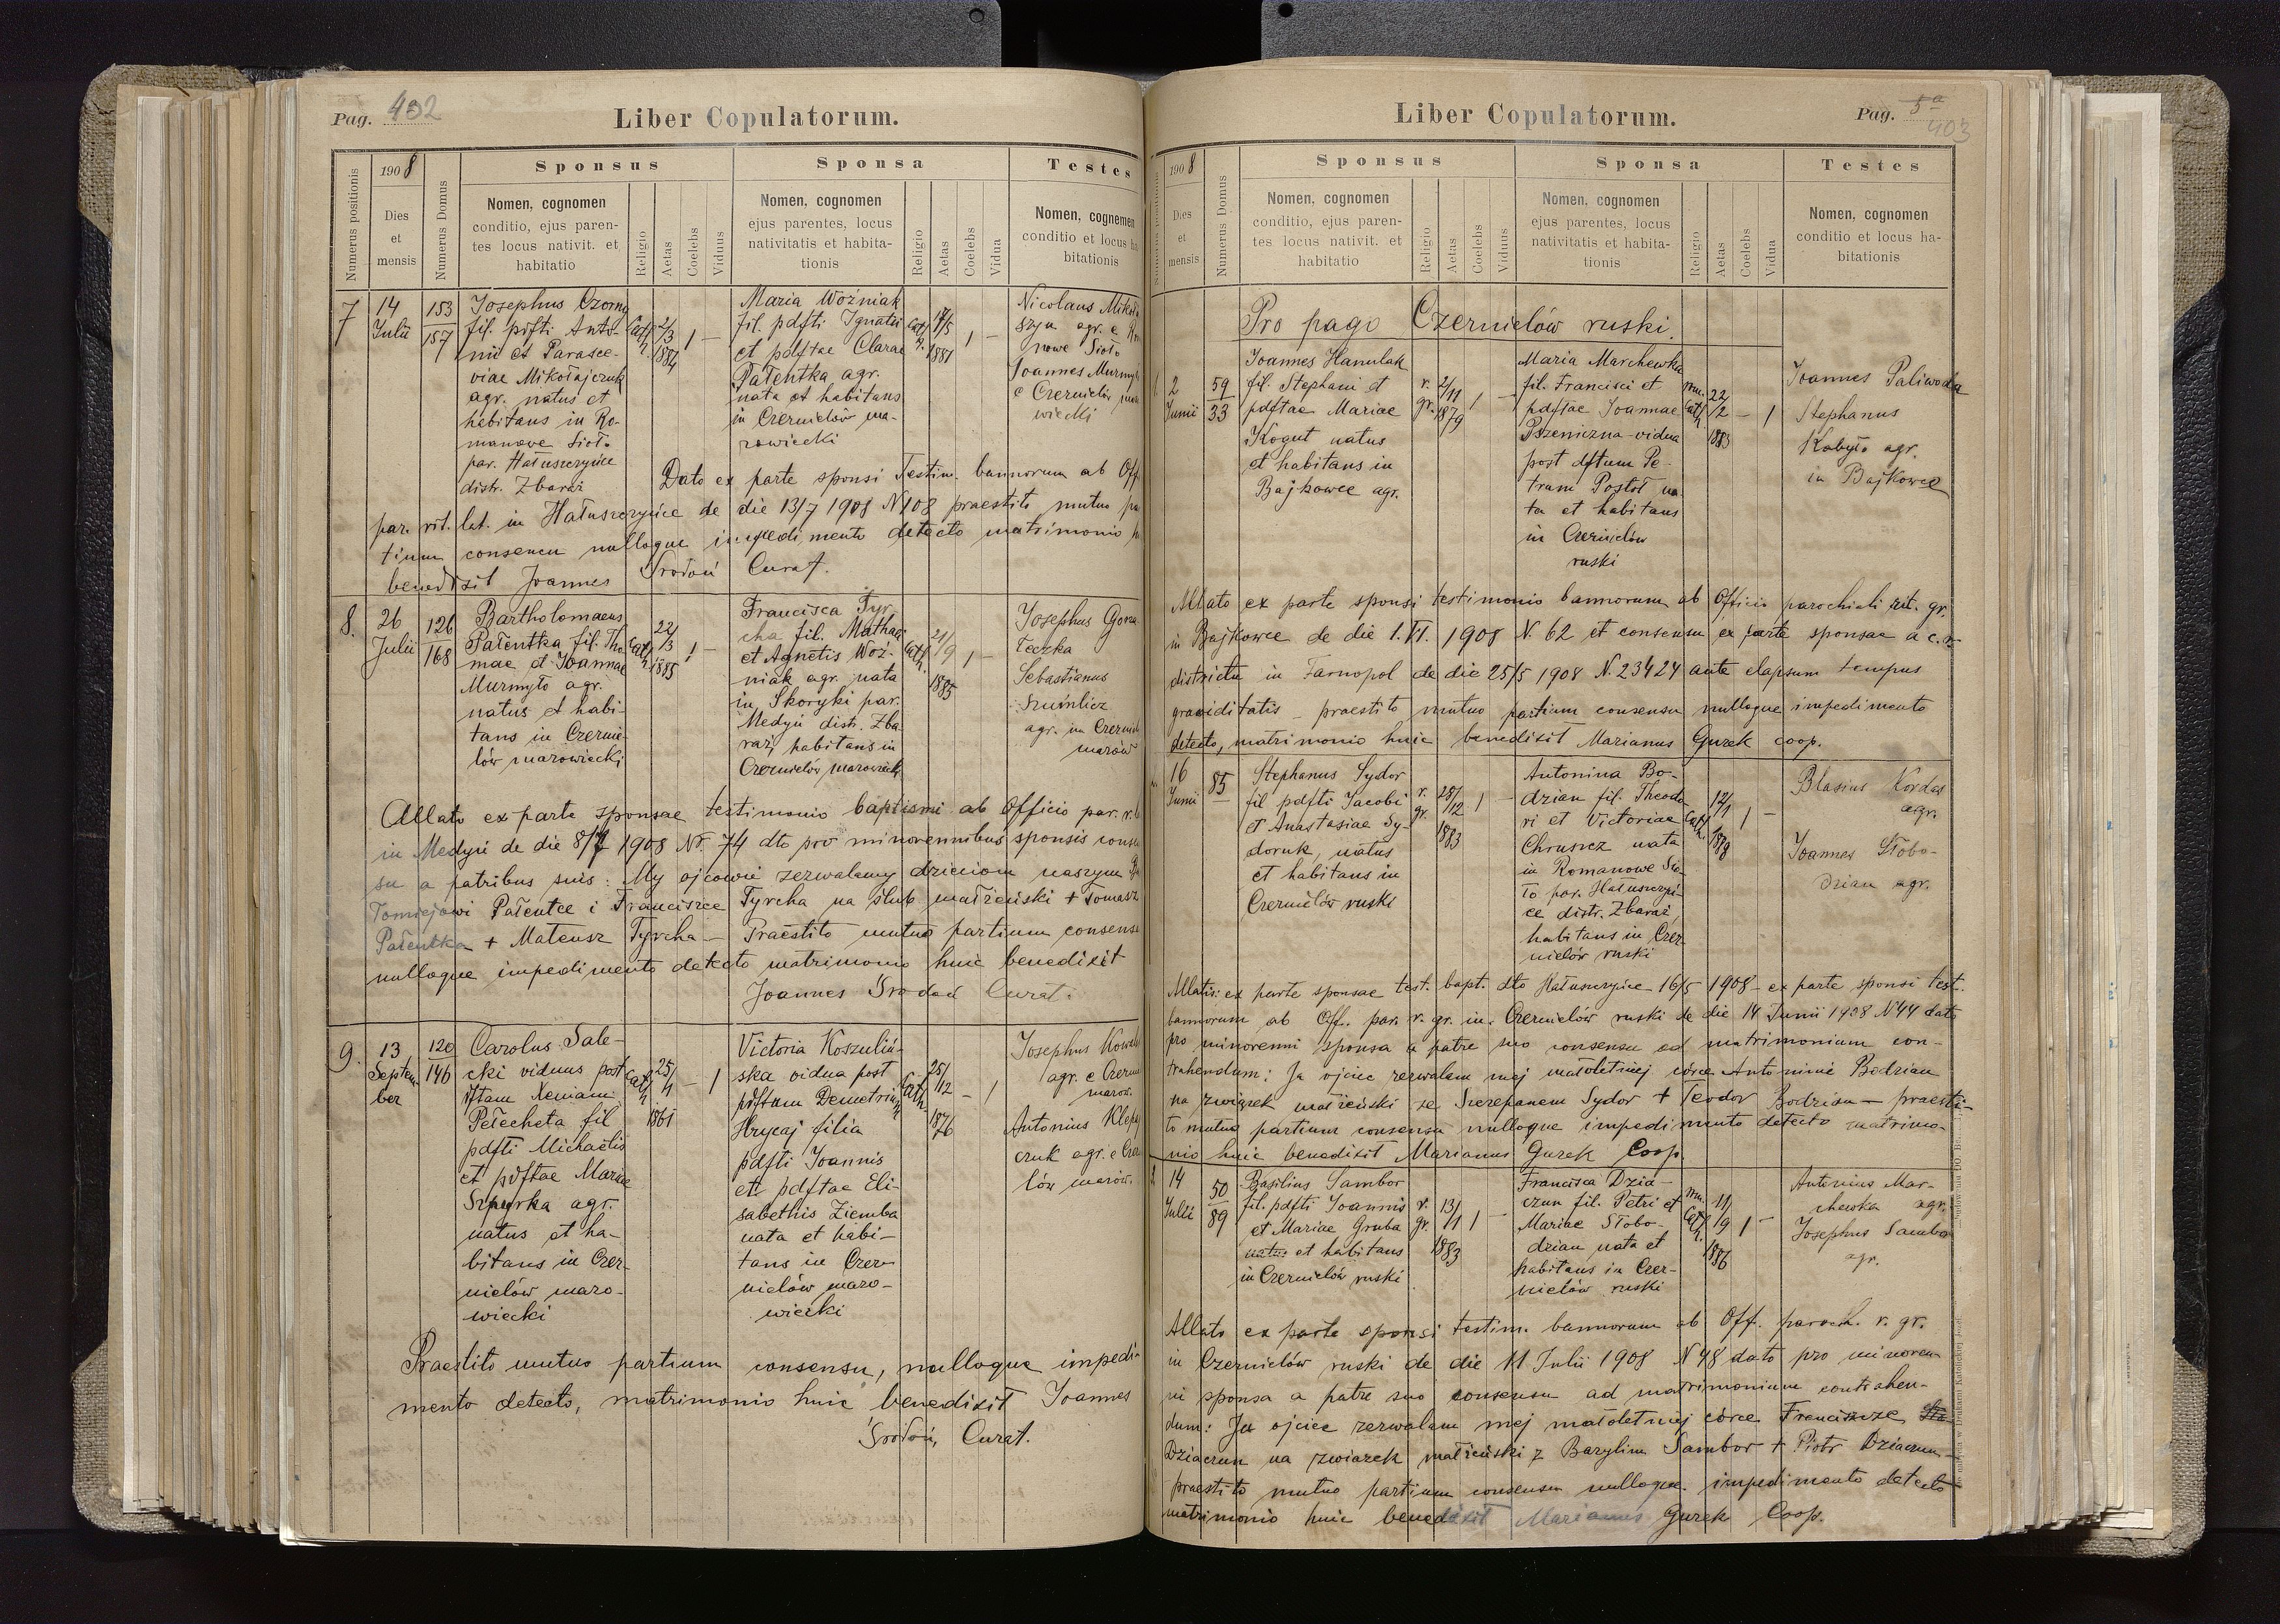 Pag. 402
Liber Copulatorum.
Numerus positionis
1908
Dies
et
mensis
Numerus Domus
Sponsus
Nomen, cognomen
conditio, ejus paren-
tes locus nativit. et
habitatio
Religio
Aetas
Coelebs
Viduus
Sponsa
Nomen, cognomen
ejus parentes, locus
nativitatis et habita-
tionis
Religio
Aetas
Coelebs
Vidua
Testes
Nomen, cognemen
conditio et locus ha
bitationis
7
14
Julii
153
157
Josephus Czorny
fil. pdfti Anto-
nii et Parasce-
viae Mikołajczuk
agr. natus et
habitans in Ro-
manowe Sioło
par. Hałuszczyńce
distr. Zbaraż
Cath.
2/3
1884
1
–
Maria Woźniak
fil. pdfti Ignatii
et pdftae Clarae
Pałentka agr.
nata et habitans
in Czernielów ma-
zowiecki
Cath.
1881
1
–
Nicolaus
szyn agr. e
nowe Sioło
Joannes
e Czernielów
wiecki
Dato ex parte sponsi Testim. bannorum ab Off.
par. rit. lat. in Hałuszczyńce de die 13/7 1908 N 108 praestito mutuo
tium consensu nulloque impedimento detecto matrimonio
benedixit Joannes Srodoń Curat.
8.
26
Julii
126
168
Bartholomaeus
Pałentka fil. Tho-
mae et Joannae
Murmyło agr.
natus et habi-
tans in Czernie-
lów mazowiecki
Cath.
22/3
1885
1
–
Francisca Tyr-
cha fil. Mathaei
et Agnetis Woź-
niak agr. nata
in Skoryki par.
Medyń distr. Zba-
raż, habitans in
Czernielów mazowiecki
Cath.
21/9
1885
1
–
Josephus
Teczka
Sebastianus
agr. in Czerniel
mazow
Allato ex parte sponsae testimonio baptismi ab Officio par. r. l.
in Medyń de die 8/7 1908 Nr. 74 dto pro minorennibus sponsis
su a patribus suis: My ojcowie zezwalamy dzieciom naszym
Tomiejowi Pałentce i Franciszce Tyrcha na ślub małżeński + Tomasz
Pałentka + Mateusz Tyrcha – Praestito mutuo partium consensu
nulloque impedimento detecto matrimonio huic benedixit
Joannes Srodoń Curat.
9.
13
Septem
ber
120
146
Carolus Sale-
cki viduus post
dftam Xeniam
Pełecheta fil
pdfti Michaelis
et pdftae Mariae
Szpyrka agr.
natus et ha-
bitans in Czer-
nielów mazo-
wiecki
Cath.
25/4
1861
–
1
Victoria Koszuliń-
ska vidua post
pdftum Demetrium
Hrycaj filia
pdfti Joannis
et pdftae Eli-
sabethis Ziemba
nata et habi-
tans in Czer-
nielów mazo-
wiecki
Cath.
25/12
1876
–
1
Josephus
agr. e Czerni
mazow.
Antonius
czuk agr. e
lów mazow.
Praestito mutuo partium consensu, nulloque impedi-
mento detecto, matrimonio huic benedixit Joannes
Srodoń, Curat.
Liber Copulatorum.
Pag. 5a
403
Numerus positionis
1908
Dies
et
mensis
Numerus Domus
Sponsus
Nomen, cognomen
conditio, ejus paren-
tes locus nativit. et
habitatio
Religio
Aetas
Coelebs
Viduus
Sponsa
Nomen, cognomen
ejus parentes, locus
nativitatis et habita-
tionis
Religio
Aetas
Coelebs
Vidua
Testes
Nomen, cognomen
conditio et locus ha-
bitationis
Pro pago Czernielów ruski.
2
Junii
59
33
Joannes Hanulak
fil. Stephani et
pdftae Mariae
Kogut natus
et habitans in
Bajkowce agr.
r.
gr.
2/11
1879
1
–
Maria Marchewka
fil. Francisci et
pdftae Joannae
Pszeniczna vidua
post dftum Pe-
trum Postół na-
ta et habitans
in Czernielów
ruski
rom.
Cath.
22/2
1883
–
1
Joannes Paliwoda
Stephanus
Kobyło agr.
in Bajkowce
Allato ex parte sponsi testimonio bannorum ab Officio parochiali rit. gr.
in Bajkowce de die 1.VI. 1908 N. 62 et consensu ex parte sponsae a c. r.
districtu in Tarnopol de die 25/5 1908 N. 23424 ante elapsum tempus
graviditatis – praestito mutuo partium consensu nulloque impedimento
detecto, matrimonio huic benedixit Marianus Gurek coop.
16
Junii
85
Stephanus Sydor
fil pdfti Jacobi
et Anastasiae Sy-
doruk, natus
et habitans in
Czernielów ruski
r.
gr.
28/12
1883
1
–
Antonina Bo-
drian fil. Theodo-
ri et Victoriae
Chruszcz nata
in Romanowe Sio-
ło par. Hałuszczyń-
ce distr. Zbaraż,
habitans in Czer-
nielów ruski
Cath.
12/1
1888
1
–
Blasius Kordas
agr.
Joannes Słobo-
dzian agr.
Allatis: ex parte sponsae test. bapt. dto Hałuszczyńce 16/5 1908 – ex parte sponsi test.
bannorum ab Off. par. r. gr. in Czernielów ruski de die 14 Junii 1908 N 44 dato
pro minorenni sponsa a patre suo consensu ad matrimonium con-
trahendum: Ja ojciec zezwalam mej małoletniej córce Antoninie Bodrian
na związek małżeński ze Szczepanem Sydor + Teodor Bodrian – praesti-
to mutuo partium consensu nulloque impedimento detecto matrimo-
nio huic benedixit Marianus Gurek Coop.
14
Julii
50
89
Basilius Sambor
fil. pdfti Joannis
et Mariae Gruba
natus et habitans
in Czernielów ruski
r.
gr.
13/1
1883
1
–
Francisca Dzia-
czun fil. Petri et
Mariae Słobo-
dzian nata et
habitans in Czer-
nielów ruski
rom.
Cath.
11/9
1886
1
–
Antonius Mar-
chewka agr.
Josephus Sambor
agr.
Allato ex parte sponsi testim. bannorum ab Off. paroch. r. gr.
in Czernielów ruski de die 11 Julii 1908 N 48 dato pro minoren-
ni sponsa a patre suo consensu ad matrimonium contrahen-
dum: Ja ojciec zezwalam mej małoletniej córce Franciszce
Dziaczun na związek małżeński z Bazylim Sambor + Piotr Dziaczun –
praestito mutuo partium consensu nulloque impedimento detecto
matrimonio huic benedixit Marianus Gurek Coop.